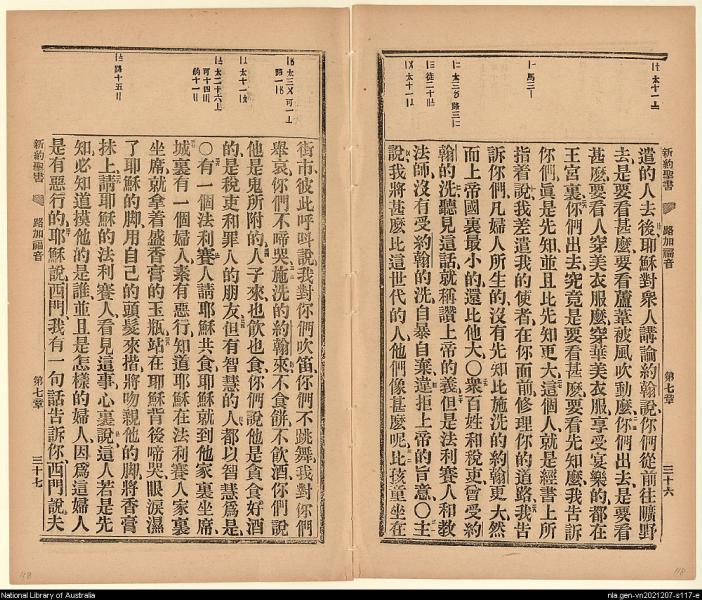 新約聖書 路加福音 第七章 三十六
遣的人去後耶穌對衆人講論約翰說你們從前往曠野
去是要看甚麼要看蘆葦被風吹動麼你們出去是要看
甚麼要看人穿美衣服麼穿華美衣服享受宴樂的都在
王宮裏你們出去究竟是要看甚麼要看先知麼我告訴
你們眞是先知並且比先知更大這個人就是經書上所
指着說我差遣我的使者在你面前修理你的道路我告
訴你們凡婦人所生的沒有先知比施洗的約翰更大然
而上帝國裏最小的還比他大〇衆百姓和稅吏曾受約
翰的洗聽見這話就稱讚上帝的義但是法利賽人和教
法師沒有受約翰的洗自暴自棄違拒上帝的旨意〇主
說我將甚麼比這世代的人他們像甚麼呢比孩童坐在
街市彼此呼呌說我對你們吹笛你們不跳舞我對你們
舉哀你們不啼哭施洗的約翰來不食餅不飲酒你們說
他是鬼所附的人子來也飲也食你們說他是貪食好酒
的是稅吏和罪人的朋友但有智慧的人都以智慧爲是
〇有一個法利賽人請耶穌共食耶穌就到他家裏坐席
城裏有一個婦人素有惡行知道耶穌在法利賽人家裏
坐席就拿着盛香膏的玉瓶站在耶穌背後啼哭眼淚濕
了耶穌的脚用自己的頭髮來揩將吻親他的脚將香膏
抹上請耶穌的法利賽人看見這事心裏說這人若是先
知必知道摸他的是誰並且是怎樣的婦人因爲這婦人
是有惡行的耶穌說西門我有一句話告訴你西門說夫
新約聖書 路加福音 第七章 三十七
National Library of Australia
nla.gen-vn2021207-s117-e